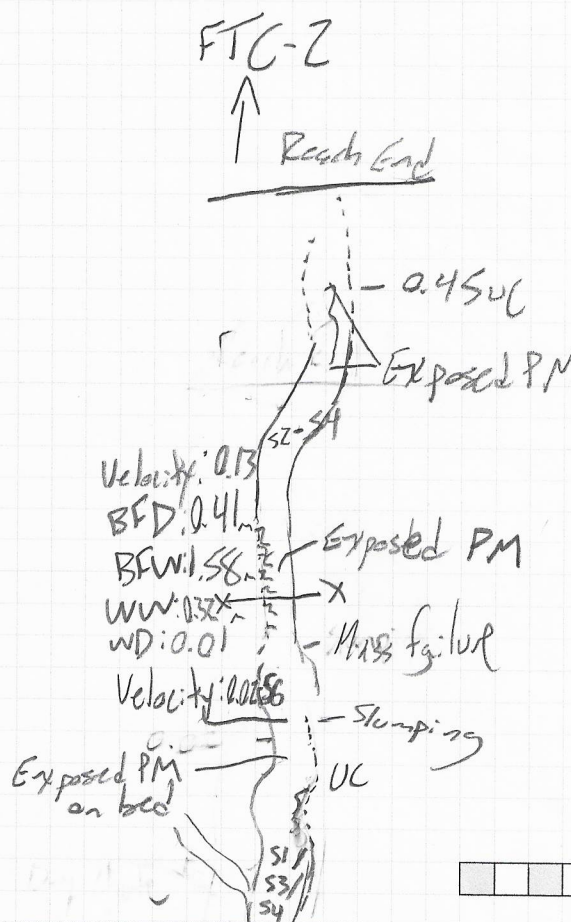 FTC-2
Reach End
0.45 UC
Exposed PM
S2-S4
Velocity: 0.13
BFD: 0.41m
Exposed PM
BFW: 1.58m
WW: 0.32m
X X
WD: 0.01
Mass failure
Velocity: 0.0256
Slumping
Exposed PM
on bed
UC
S1
S3
S4